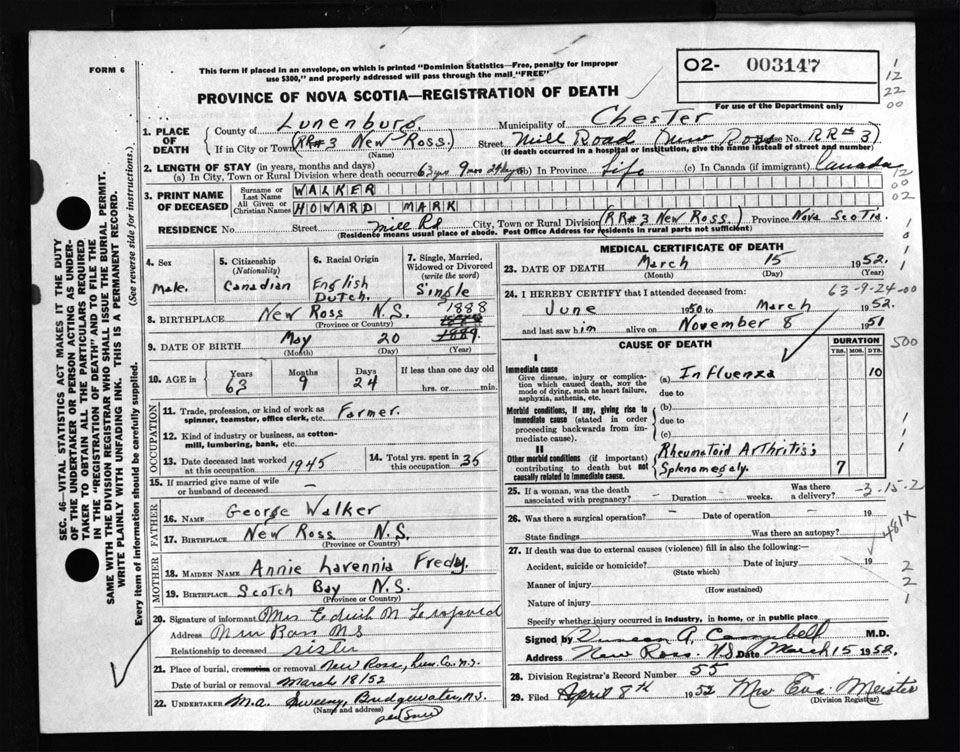 FORM 6
This form if placed in an envelope, on which is printed "Dominion Statistics—Free, penalty for improper
use $300," and properly addressed will pass through the mail "FREE"
PROVINCE OF NOVA SCOTIA—REGISTRATION OF DEATH
O2- 003147
For use of the Department only
1
12
22
00
1. PLACE OF DEATH
County of Lunenburg. Municipality of Chester
If in City or Town (RR#3 New Ross.) Street Mill Road (New Ross House No. RR#3)
(Name) (If death occurred in a hospital or institution, give the name instead of street and number)
2. LENGTH OF STAY (in years, months and days)
(a) In City, Town or Rural Division where death occurred 63 yrs 9 mos 24 days (b) In Province Life (c) In Canada (if immigrant) Canada
12
00
02
3. PRINT NAME OF DECEASED
Surname or Last Name WALKER
All Given or Christian Names HOWARD MARK
RESIDENCE No. Street Mill Rd City, Town or Rural Division (RR#3 New Ross.) Province Nova Scotia
(Residence means usual place of abode. Post Office Address for residents in rural parts not sufficient)
4. Sex Male.
5. Citizenship (Nationality) Canadian
6. Racial Origin English Dutch.
7. Single, Married, Widowed or Divorced (write the word) Single
8. BIRTHPLACE New Ross N.S.
(Province or Country)
1888
9. DATE OF BIRTH May 20 1889.
(Month) (Day) (Year)
10. AGE in Years 63 Months 9 Days 24 If less than one day old
hrs. or min.
OCCUPATION
11. Trade, profession, or kind of work as spinner, teamster, office clerk, etc. Farmer.
12. Kind of industry or business, as cotton-mill, lumbering, bank, etc.
13. Date deceased last worked at this occupation 1945
14. Total yrs. spent in this occupation 35
15. If married give name of wife or husband of deceased –
FATHER
16. NAME George Walker
17. BIRTHPLACE New Ross N.S.
(Province or Country)
MOTHER
18. MAIDEN NAME Annie Lavennia Freda.
19. BIRTHPLACE Scotch Bay N.S.
(Province or Country)
20. Signature of informant Mrs Edith M Leopold
Address New Ross NS
Relationship to deceased sister
21. Place of burial, cremation or removal New Ross, Lun. Co. N.S.
Date of burial or removal March 18/52
22. UNDERTAKER M.A. Sweeny, Bridgewater, N.S.
(Name and address)
MEDICAL CERTIFICATE OF DEATH
23. DATE OF DEATH March 15 1952.
(Month) (Day) (Year)
24. I HEREBY CERTIFY that I attended deceased from: 63-9-24-00
June 1950 to March 1952.
and last saw him alive on November 8 1951
500
CAUSE OF DEATH
DURATION
YRS. MOS. DYS.
I
Immediate cause
Give disease, injury or complication which caused death, not the mode of dying, such as heart failure, asphyxia, asthenia, etc.
(a) Influenza 10
due to
Morbid conditions, if any, giving rise to immediate cause (stated in order proceeding backwards from immediate cause).
(b)
due to
(c)
II
Other morbid conditions (if important) contributing to death but not causally related to immediate cause.
Rheumatoid Arthritis;
Splenomegaly. 7
25. If a woman, was the death associated with pregnancy? – Duration weeks. Was there a delivery? -3-15-2
26. Was there a surgical operation? – Date of operation – 19
State findings Was there an autopsy?
481X
27. If death was due to external causes (violence) fill in also the following:—
Accident, suicide or homicide? Date of injury 19
(State which)
Manner of injury
(How sustained)
Nature of injury
2
2
1
Specify whether injury occurred in industry, in home, or in public place
Signed by Duncan A. Campbell M.D.
Address New Ross. N.S. Date March 15 1952.
28. Division Registrar's Record Number 55
29. Filed April 8th 1952 Mrs Eva Meister
(Division Registrar)
SEC. 46—VITAL STATISTICS ACT MAKES IT THE DUTY
OF THE UNDERTAKER OR PERSON ACTING AS UNDER-
TAKER TO OBTAIN ALL THE PARTICULARS REQUIRED
IN THE "REGISTRATION OF DEATH" AND TO FILE THE
SAME WITH THE DIVISION REGISTRAR WHO SHALL ISSUE THE BURIAL PERMIT.
WRITE PLAINLY WITH UNFADING INK. THIS IS A PERMANENT RECORD.
Every item of information should be carefully supplied. (See reverse side for instructions.)